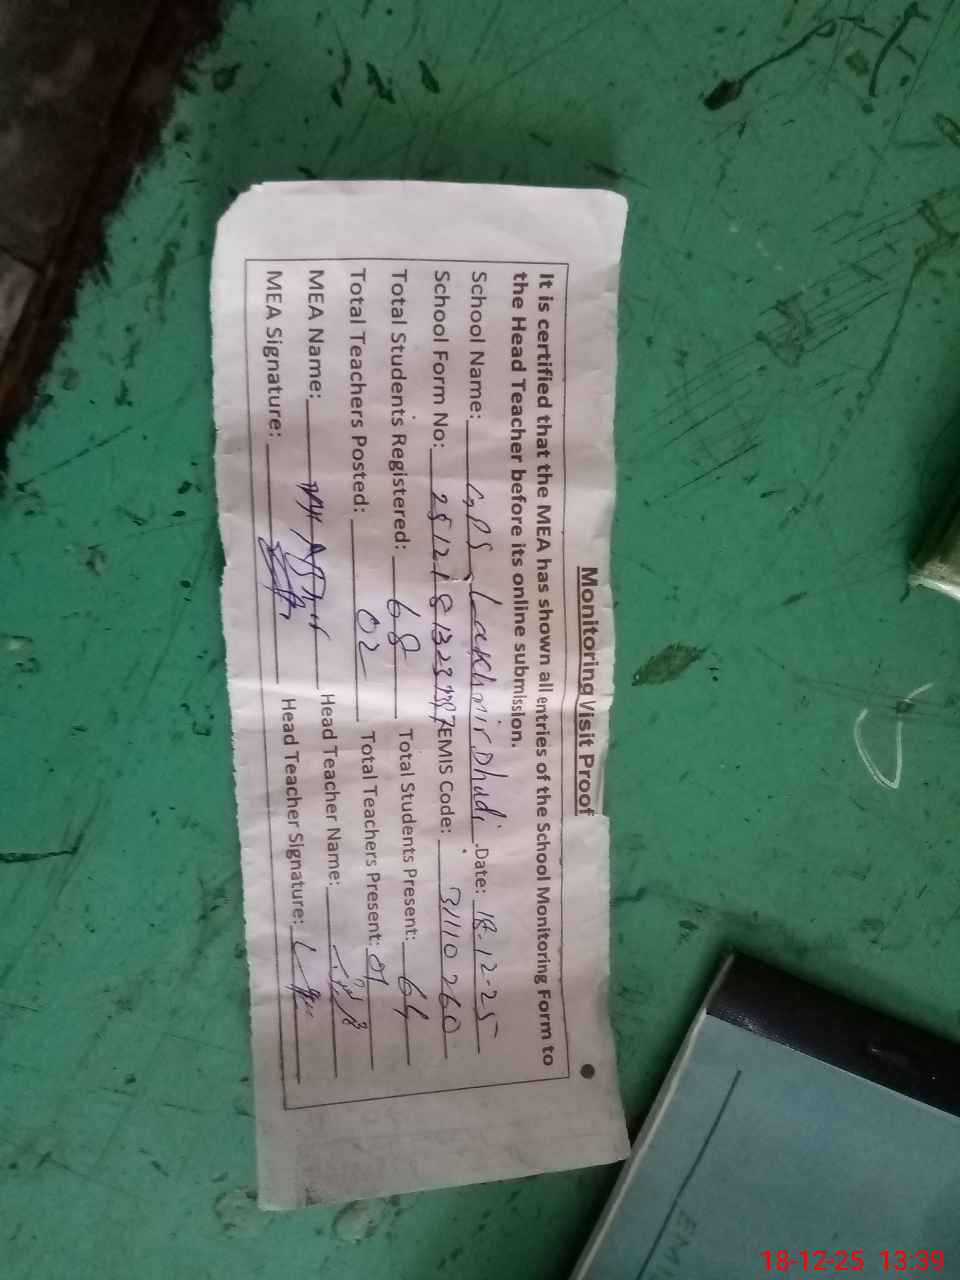 Monitoring Visit Proof
It is certified that the MEA has shown all entries of the School Monitoring Form to
the Head Teacher before its online submission.
School Name: GPS Lakhmir Dhadi Date: 18-12-25
School Form No: EMIS Code: 31110260
Total Students Registered: 68 Total Students Present: 64
Total Teachers Posted: 02 Total Teachers Present: 01
MEA Name: Head Teacher Name:
MEA Signature: Head Teacher Signature:
18-12-25 13:39